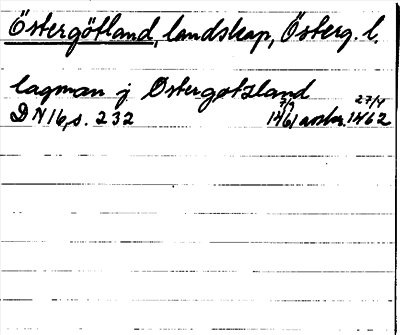 Östergötland, landskap, Österg. l.
lagman j Østergøtzland
DN 16, s. 232 7/9 1461 avskr. 27/4 1462